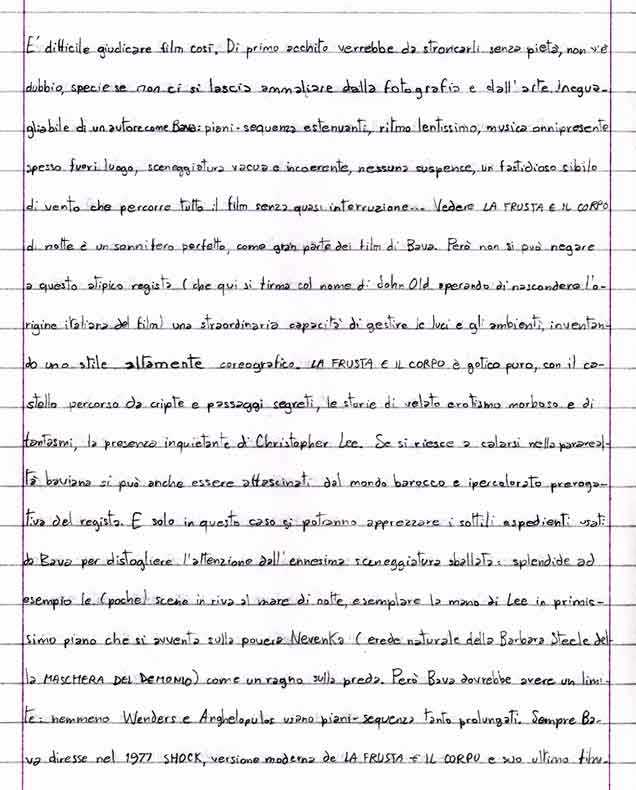 E' difficile giudicare film così. Di primo acchito verrebbe da stroncarli senza pietà, non v'è
dubbio, specie se non ci si lascia ammaliare dalla fotografia e dall'arte inegua-
gliabile di un autore come Bava: piani-sequenza estenuanti, ritmo lentissimo, musica onnipresente
spesso fuori luogo, sceneggiatura vacua e incoerente, nessuna suspence, un fastidioso sibilo
di vento che percorre tutto il film senza quasi interruzione... Vedere LA FRUSTA E IL CORPO
di notte è un sonnifero perfetto, come gran parte dei film di Bava. Però non si può negare
a questo atipico regista (che qui si firma col nome di John Old sperando di nascondere l'o-
rigine italiana del film) una straordinaria capacità di gestire le luci e gli ambienti, inventan-
do uno stile altamente coreografico. LA FRUSTA E IL CORPO è gotico puro, con il ca-
stello percorso da cripte e passaggi segreti, le storie di velato erotismo morboso e di
fantasmi, la presenza inquietante di Christopher Lee. Se si riesce a calarsi nella parareal-
tà baviana si può anche essere affascinati dal mondo barocco e ipercolorato preroga-
tiva del regista. E solo in questo caso si potranno apprezzare i sottili espedienti usati
da Bava per distogliere l'attenzione dall'ennesima sceneggiatura sballata: splendide ad
esempio le (poche) scene in riva al mare di notte, esemplare la mano di Lee in primis-
simo piano che si avventa sulla povera Nevenka (erede naturale della Barbara Steele del-
la MASCHERA DEL DEMONIO) come un ragno sulla preda. Però Bava dovrebbe avere un limi-
te: nemmeno Wenders e Anghelopulos usano piani-sequenza tanto prolungati. Sempre Ba-
va diresse nel 1977 SHOCK, versione moderna de LA FRUSTA E IL CORPO e suo ultimo film.